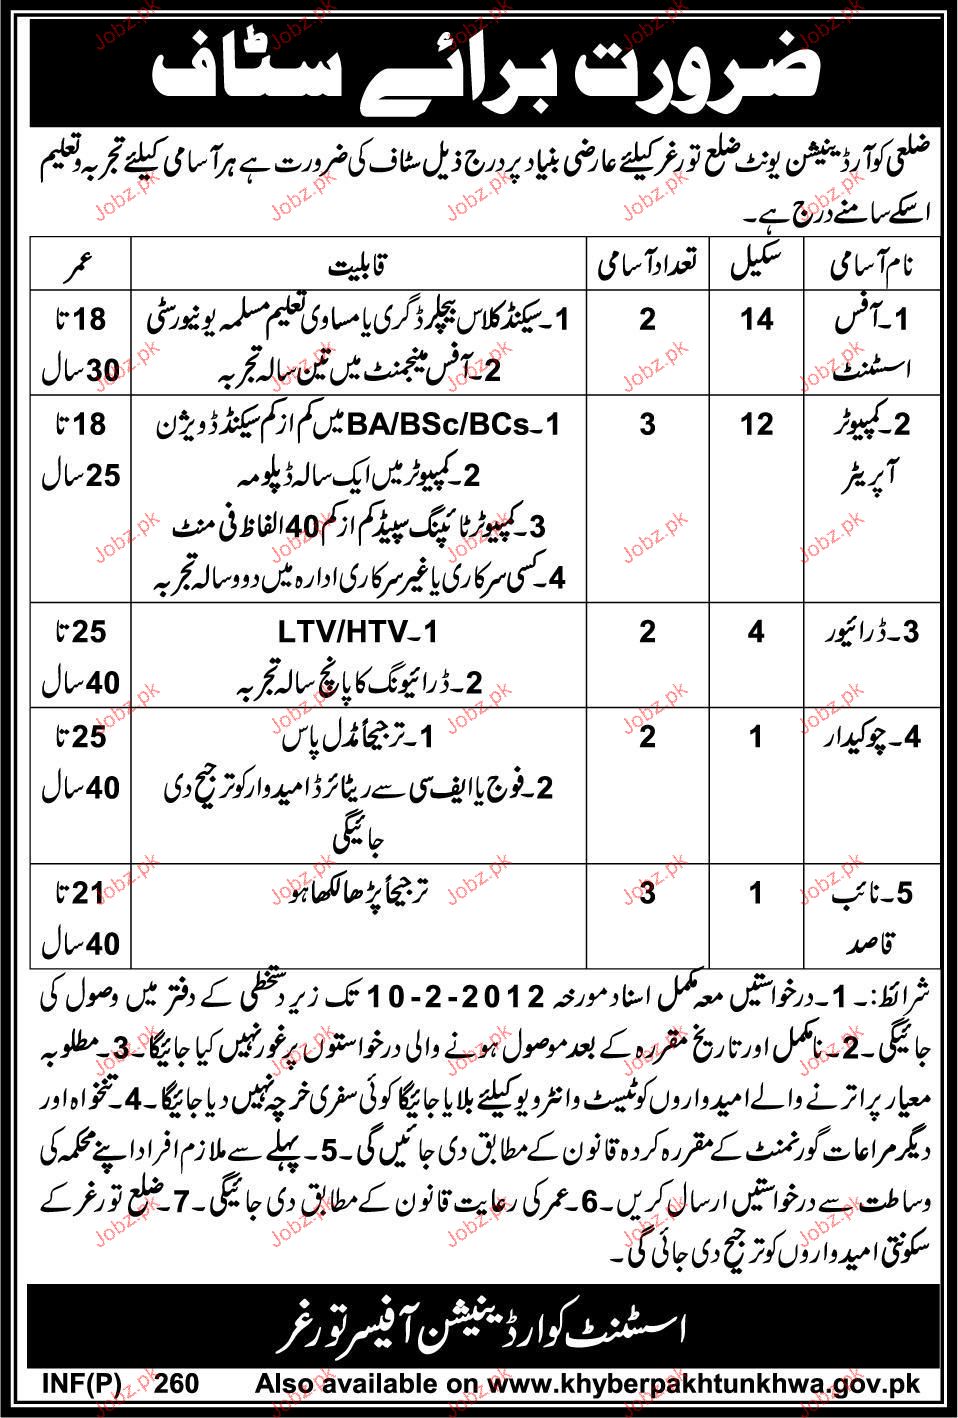 ضرورت برائے سٹاف
ضلعی کوآرڈینیشن یونٹ ضلع تورغر کیلئے عارضی بنیاد پر درج ذیل سٹاف کی ضرورت ہے ہر آسامی کیلئے تجربہ و تعلیم
اسکے سامنے درج ہے۔
نام آسامی سکیل تعداد آسامی قابلیت عمر
1۔آفس 14 2 1۔سیکنڈ کلاس بیچلر ڈگری یا مساوی تعلیم مسلمہ یونیورسٹی 18 تا
اسسٹنٹ 2۔آفس مینجمنٹ میں تین سالہ تجربہ 30 سال
2۔کمپیوٹر 12 3 1۔BA/BSc/BCs میں کم از کم سیکنڈ ڈویژن 18 تا
آپریٹر 2۔کمپیوٹر میں ایک سالہ ڈپلومہ 25 سال
3۔کمپیوٹر ٹائپنگ سپیڈ کم از کم 40 الفاظ فی منٹ
4۔کسی سرکاری یا غیر سرکاری ادارہ میں دو و سالہ تجربہ
3۔ڈرائیور 4 2 1۔LTV/HTV 25 تا
2۔ڈرائیونگ کا پانچ سالہ تجربہ 40 سال
4۔چوکیدار 1 2 1۔ترجیحاً مڈل پاس 25 تا
2۔فوج یا ایف سی سے ریٹائرڈ امیدوار کو ترجیح دی 40 سال
جائیگی
5۔نائب 1 3 ترجیحاً پڑھا لکھا ہو 21 تا
قاصد 40 سال
شرائط:۔1۔درخواستیں معہ مکمل اسناد مورخہ 10-2-2012 تک زیر دستخطی کے دفتر میں وصول کی
جائیگی۔2۔نامکمل اور تاریخ مقررہ کے بعد موصول ہونے والی درخواستوں پر غور نہیں کیا جائیگا۔3۔مطلوبہ
معیار پر اترنے والے امیدواروں کو ٹیسٹ و انٹرویو کیلئے بلایا جائیگا کوئی سفری خرچہ نہیں دیا جائیگا۔4۔تنخواہ اور
دیگر مراعات گورنمنٹ کے مقررہ کردہ قانون کے مطابق دی جائیں گی۔5۔پہلے سے ملازم افراد اپنے محکمہ کی
وساطت سے درخواستیں ارسال کریں۔6۔عمر کی رعایت قانون کے مطابق دی جائیگی۔7۔ضلع تورغر کے
سکونتی امیدواروں کو ترجیح دی جائی گی۔
اسسٹنٹ کوارڈینیشن آفیسر تورغر
INF(P) 260 Also available on www.khyberpakhtunkhwa.gov.pk